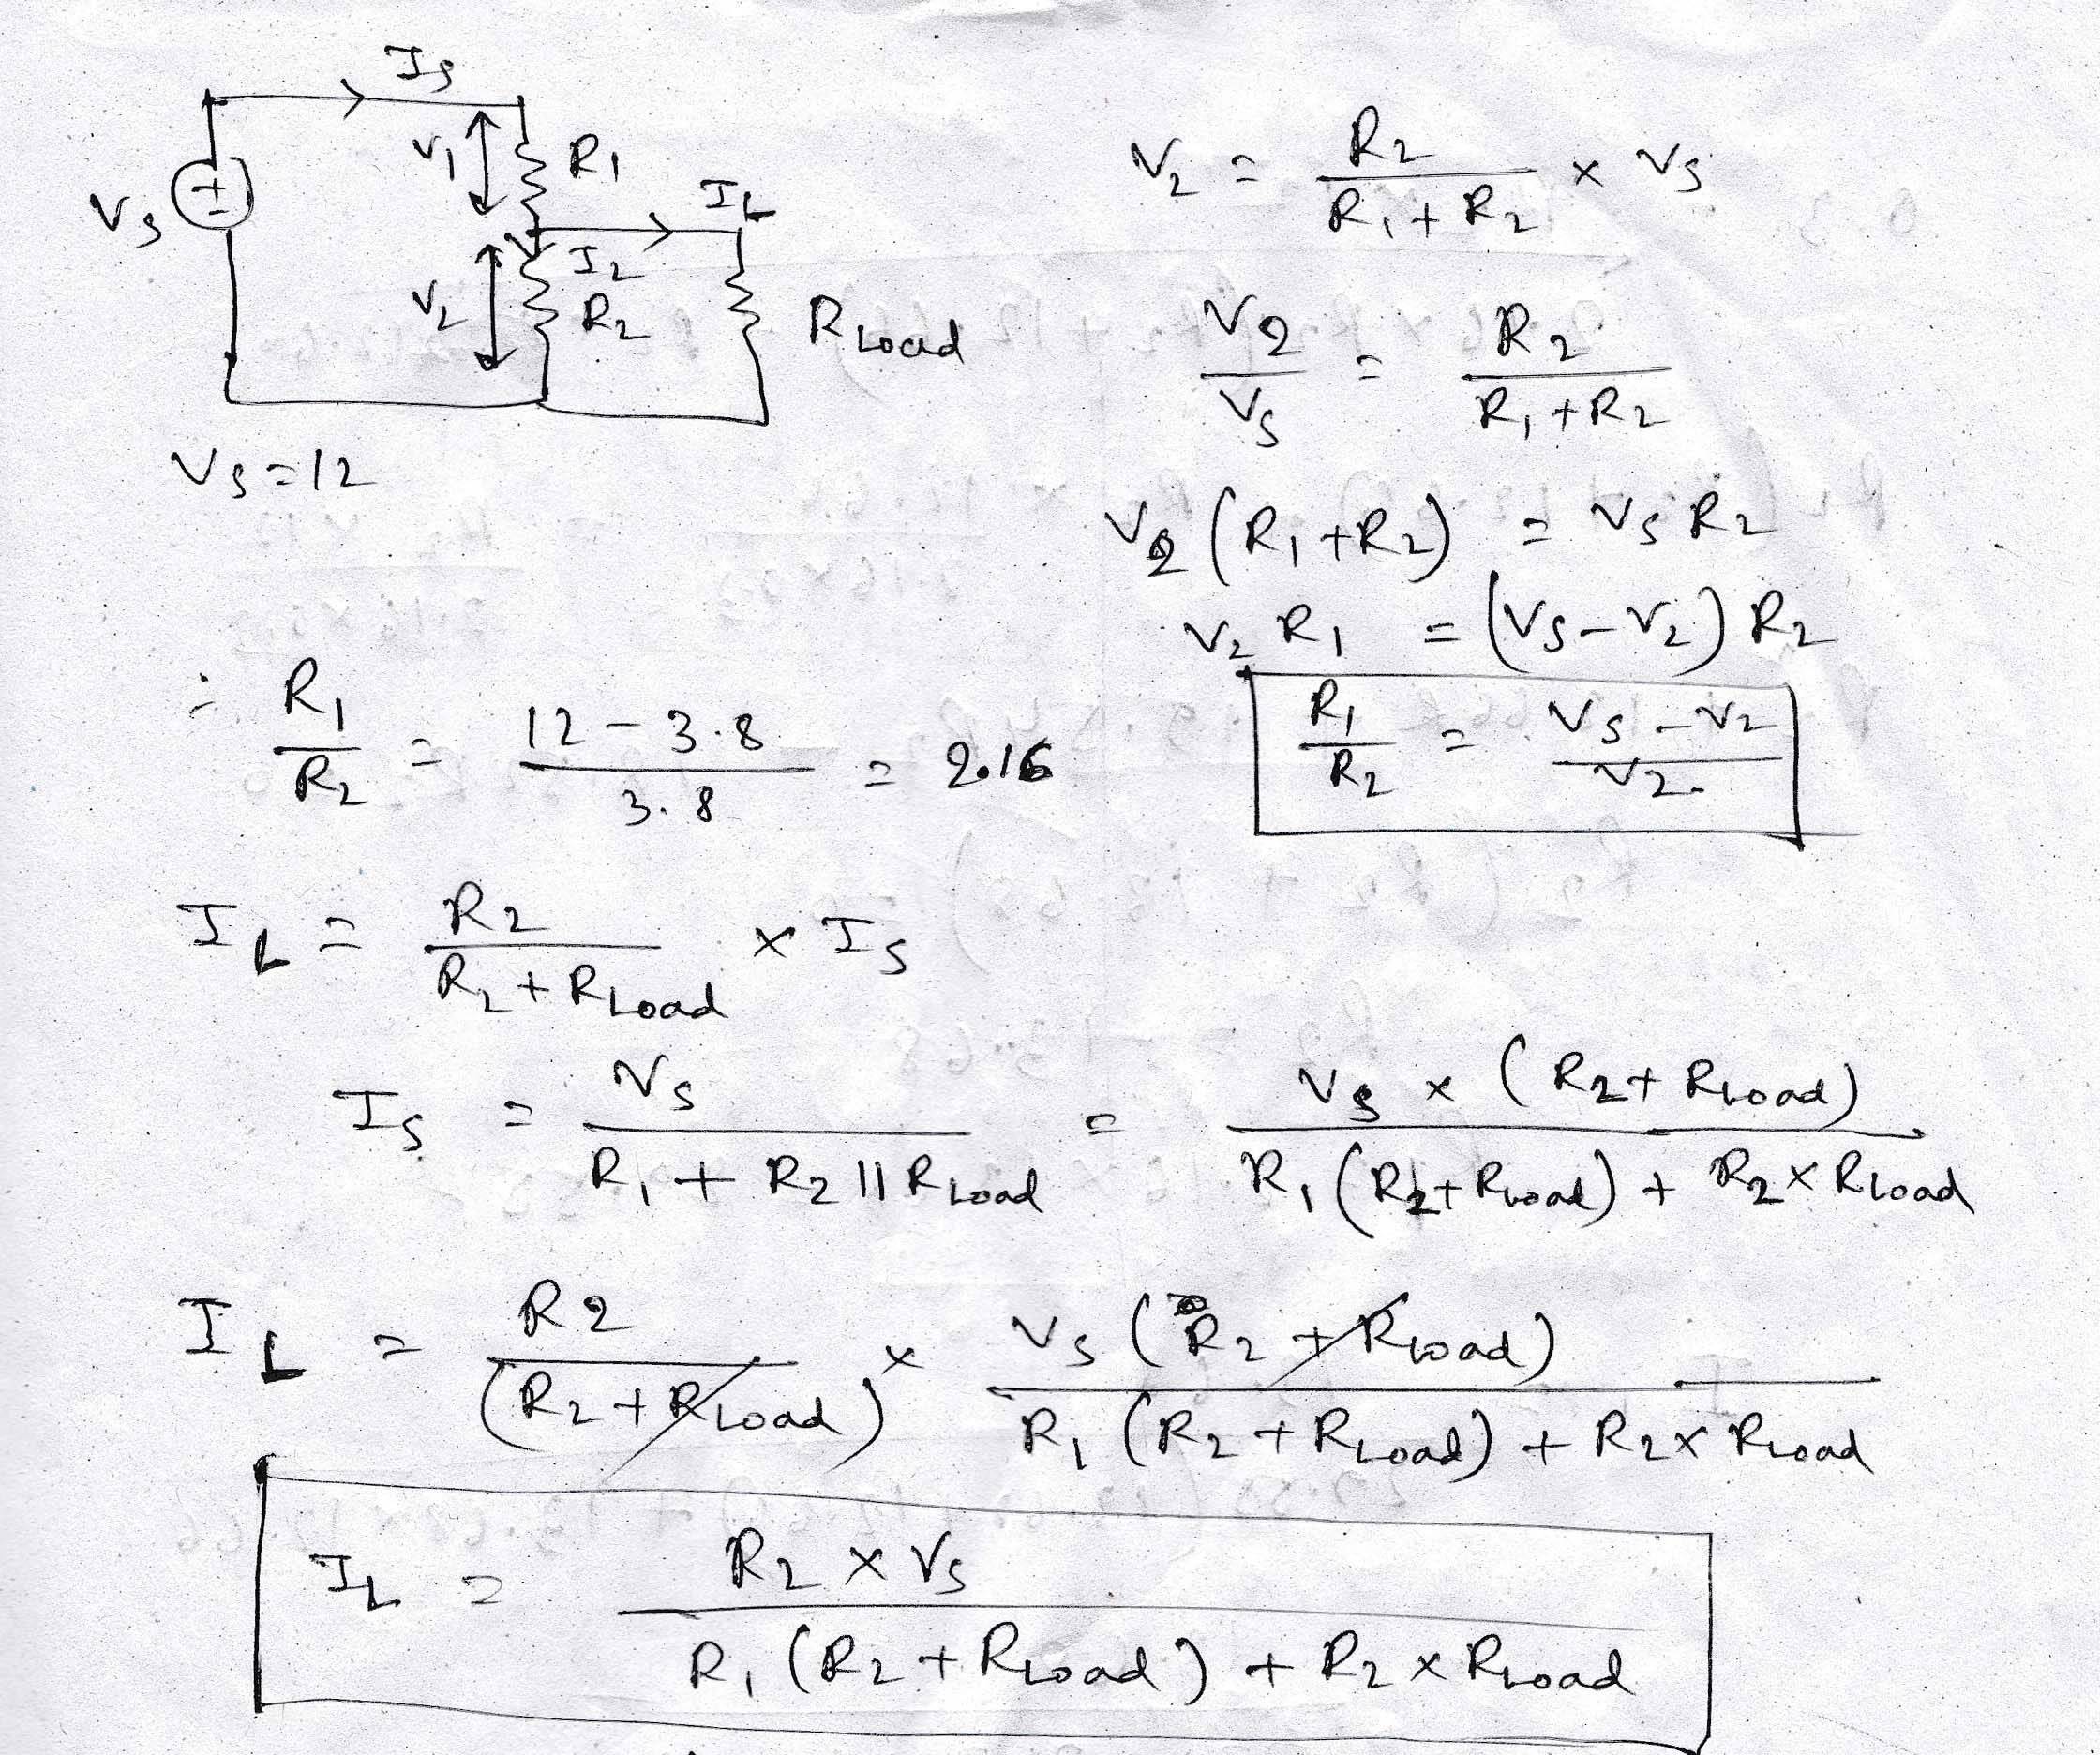 Is
V1
R1
IL
Vs
±
I2
V2
R2
RLoad
Vs=12
V2 = R2 / (R1+R2) × Vs
V2 / Vs = R2 / (R1+R2)
V2 (R1+R2) = Vs R2
V2 R1 = (Vs-V2) R2
R1 / R2 = (Vs-V2) / V2
∴ R1 / R2 = (12-3.8) / 3.8 = 2.16
IL = R2 / (R2+RLoad) × Is
Is = Vs / (R1 + R2 || RLoad) = Vs × (R2+RLoad) / (R1 (R2+RLoad) + R2×RLoad)
IL = R2 / (R2+RLoad) × Vs (R2+RLoad) / (R1 (R2+RLoad) + R2×RLoad)
IL = R2×Vs / (R1 (R2+RLoad) + R2×RLoad)